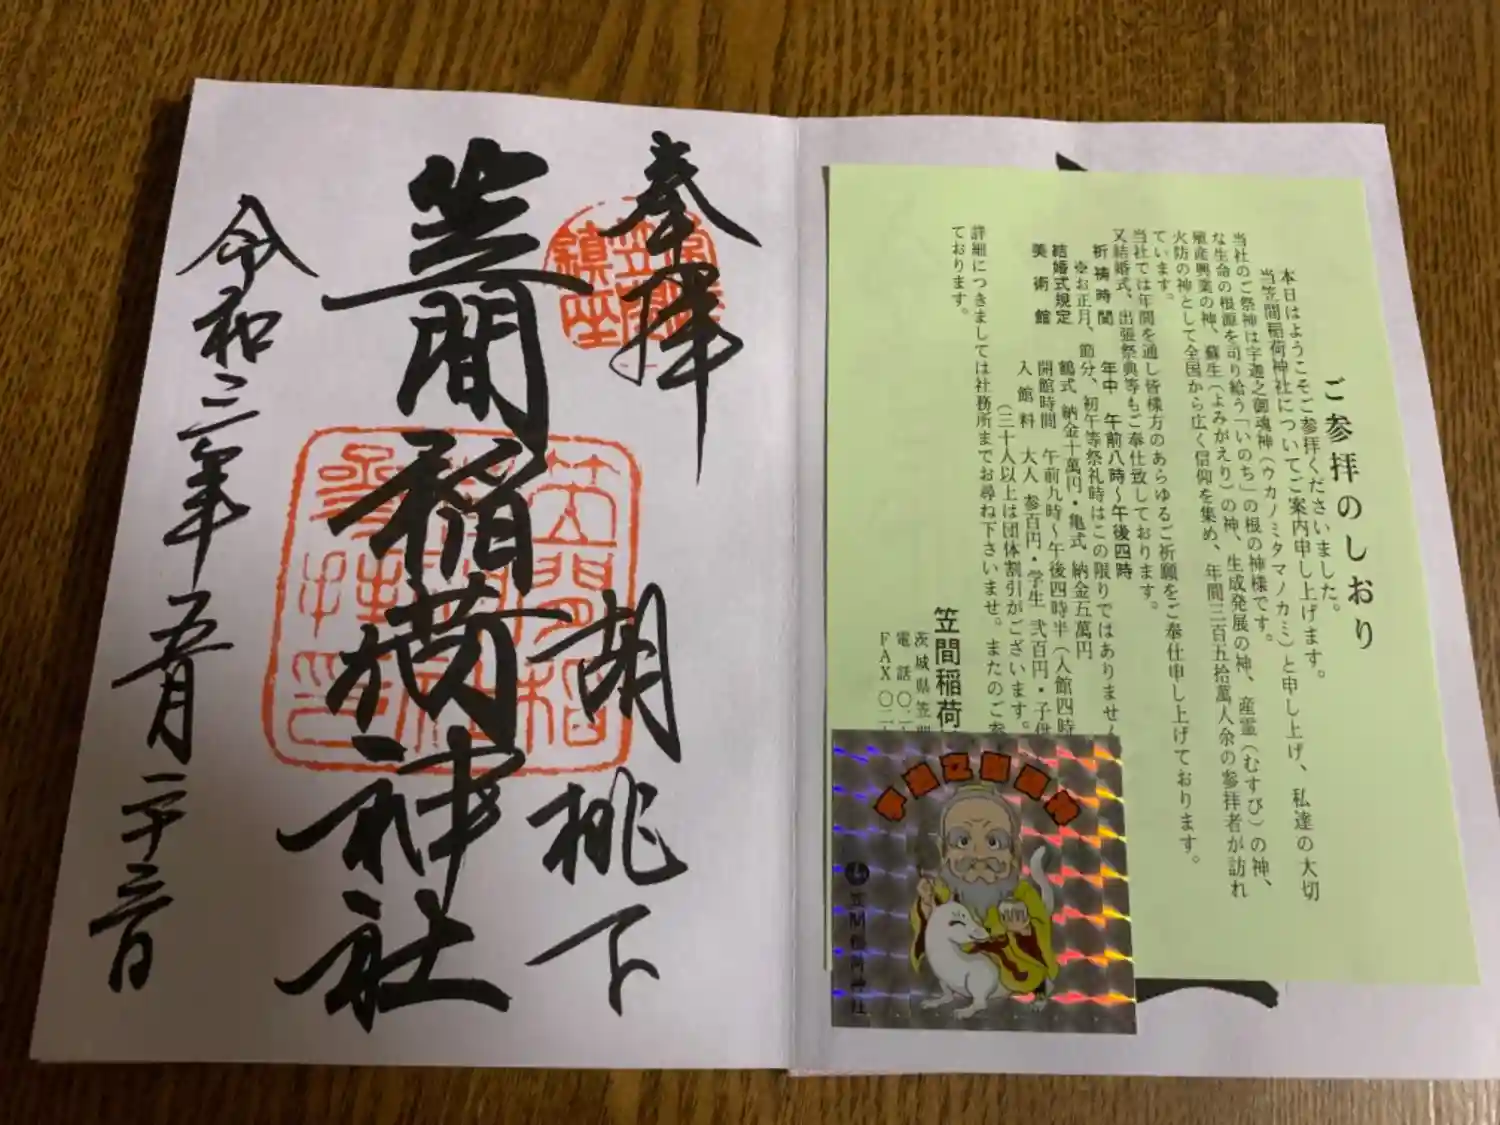 奉拝
笠間稲荷神社
胡桃下
令和三年五月二十三日
ご参拝のしおり
本日はようこそご参拝くださいました。
当笠間稲荷神社についてご案内申し上げます。
当社のご祭神は宇迦之御魂神(ウカノミタマノカミ)と申し上げ、私達の大切
な生命の根源を司り給う「いのち」の根の神様です。
殖産興業の神、蘇生(よみがえり)の神、生成発展の神、産霊(むすび)の神、
火防の神として全国から広く信仰を集め、年間三百五拾萬人余の参拝者が訪れ
ています。
当社では年間を通し皆様方のあらゆるご祈願をご奉仕申し上げております。
又結婚式、出張祭典等もご奉仕致しております。
祈祷時間 年中 午前八時~午後四時
※お正月、節分、初午等祭礼時はこの限りではありません
結婚式規定 鶴式 納金十萬円・亀式 納金五萬円
美術館 開館時間 午前九時~午後四時半(入館四時
入館料 大人 参百円・学生 弐百円・子供
(三十人以上は団体割引がございます。
詳細につきましては社務所までお尋ね下さいませ。またのご参
ております。
笠間稲荷
茨城県笠間
電話 〇二
FAX 〇二
笠間稲荷神社